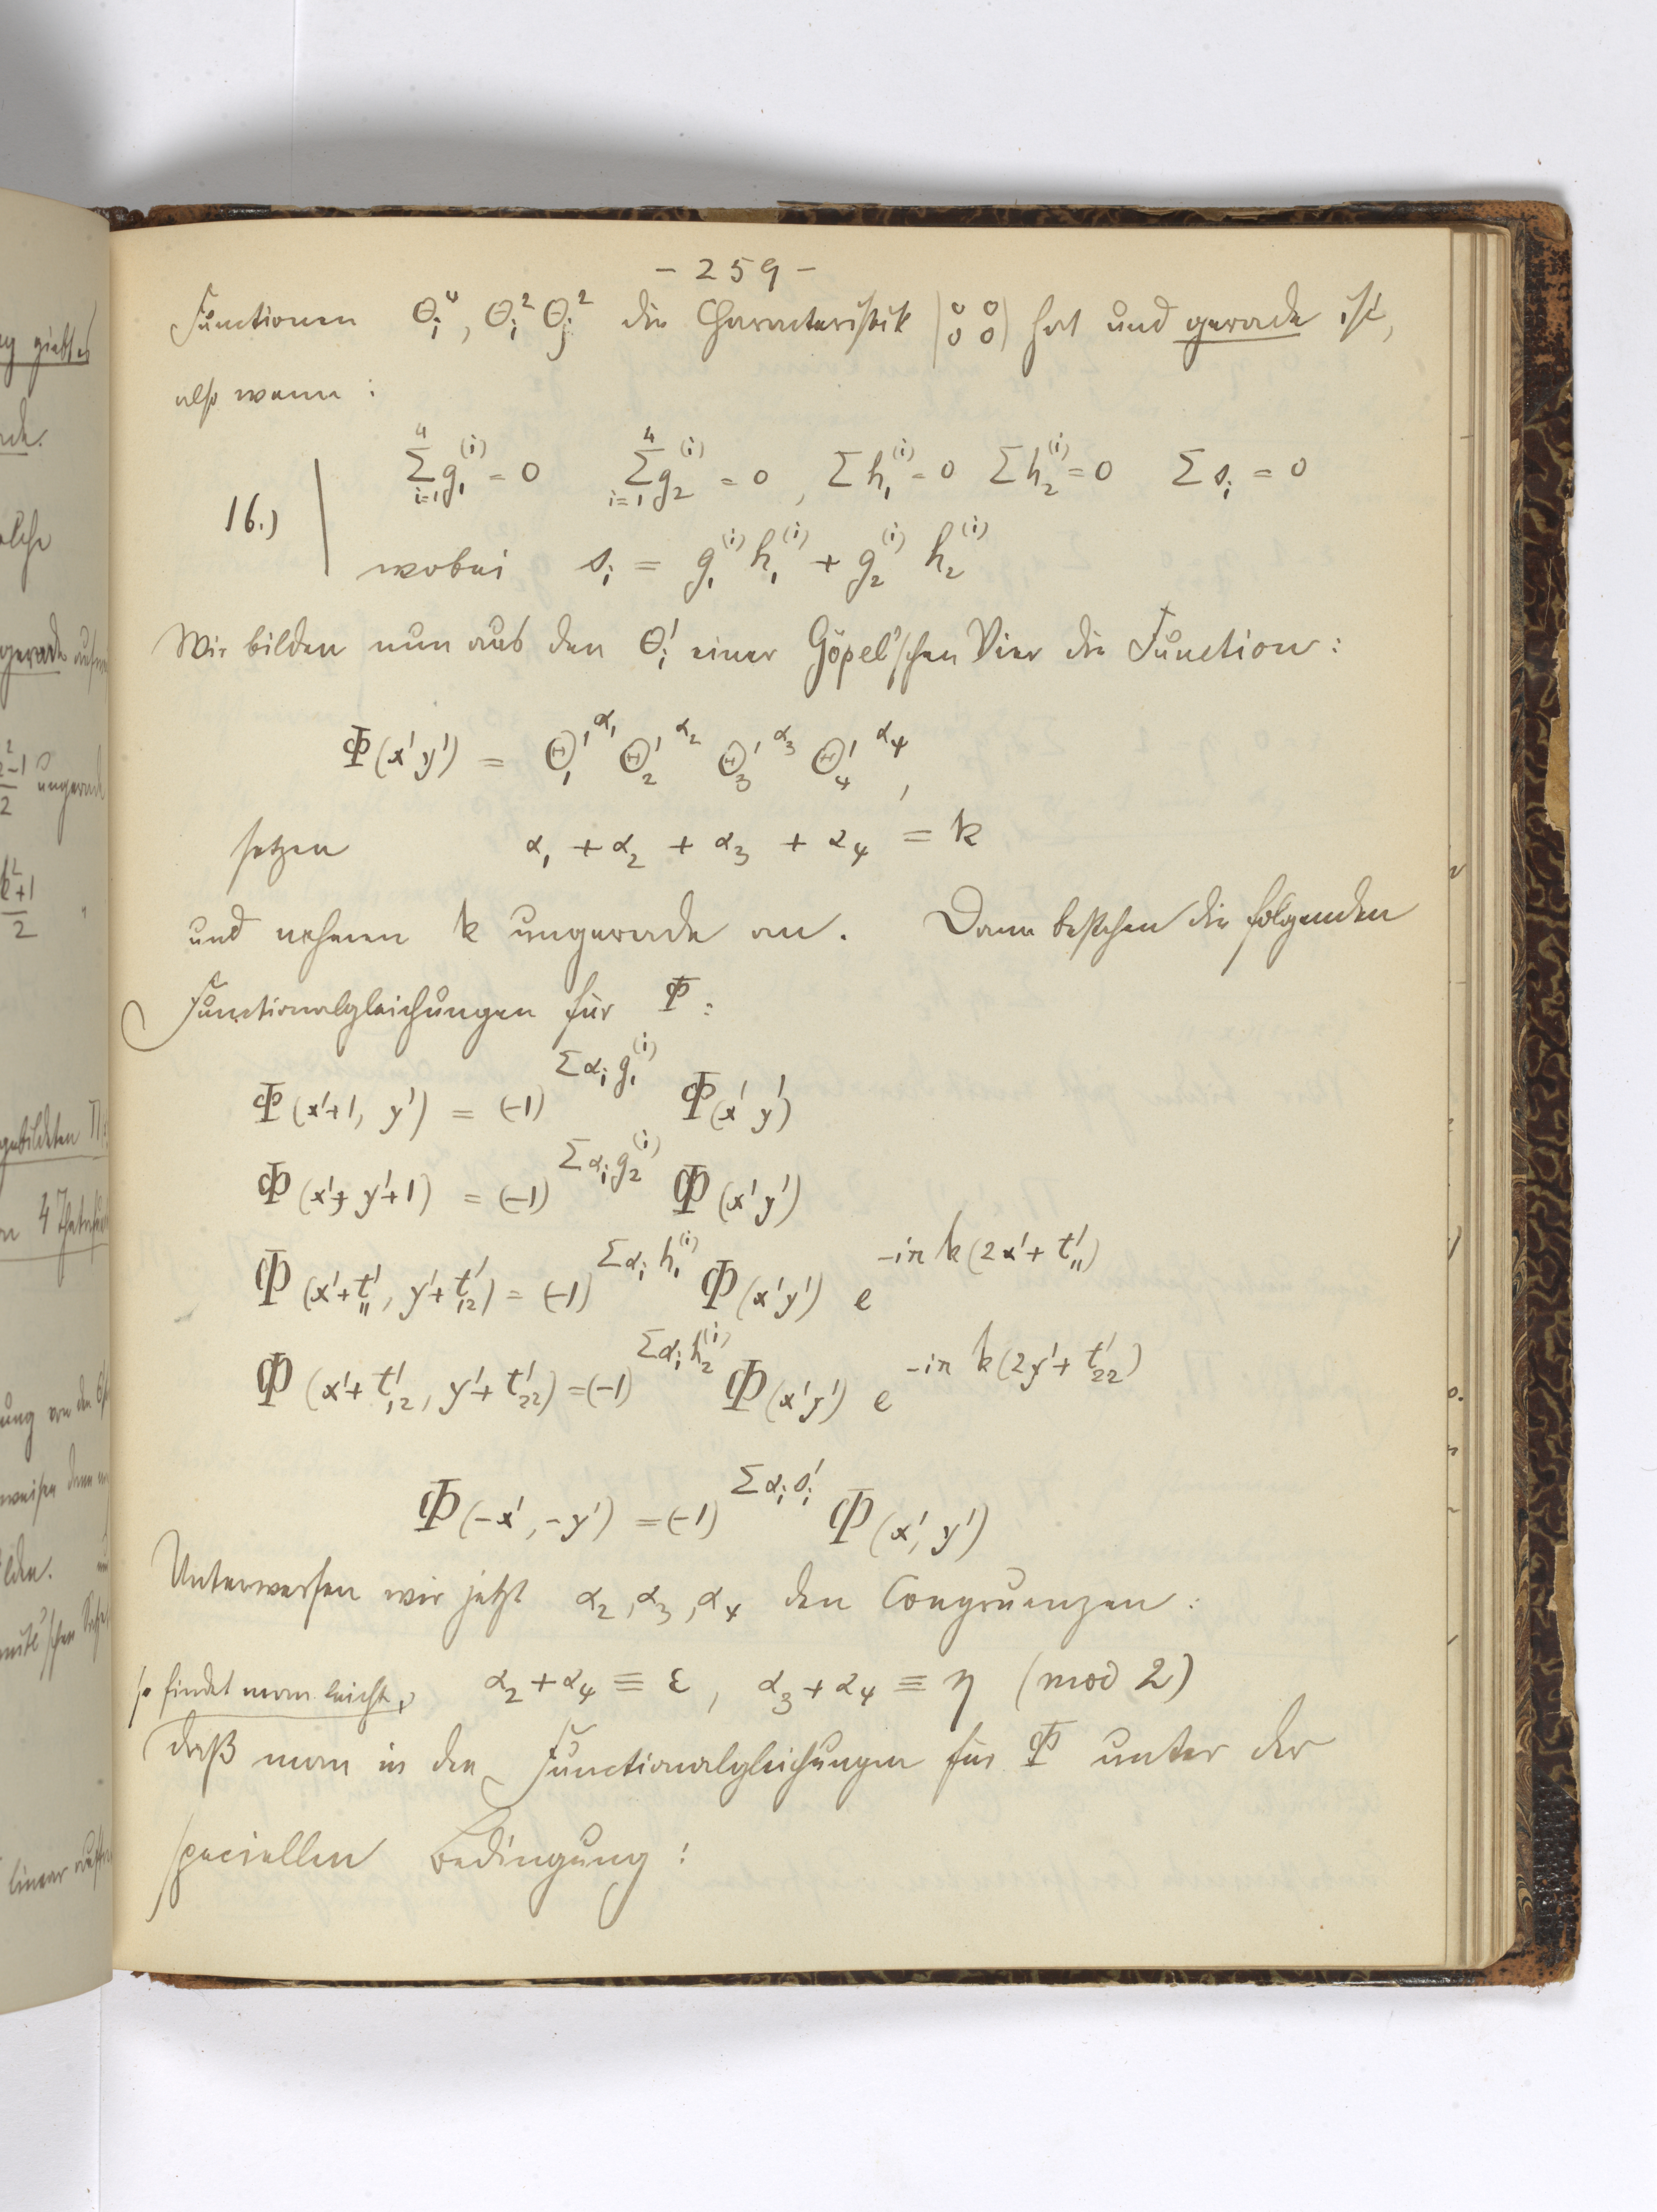 - 259 -
Functionen Θᵢ⁴, Θᵢ² Θⱼ² die Characteristik |0 0 / 0 0| hat und gerade ist,
also wenn :
16.) ∑_{i=1}^{4} g₁⁽ⁱ⁾ = 0 ∑_{i=1}^{4} g₂⁽ⁱ⁾ = 0, ∑ h₁⁽ⁱ⁾ = 0 ∑ h₂⁽ⁱ⁾ = 0 ∑ sᵢ = 0
wobei sᵢ = g₁⁽ⁱ⁾ h₁⁽ⁱ⁾ + g₂⁽ⁱ⁾ h₂⁽ⁱ⁾
Wir bilden nun aus den Θ'ᵢ einer Göpel'schen Vier die Function :
Φ(x' y') = Θ'₁^{α₁} Θ'₂^{α₂} Θ'₃^{α₃} Θ'₄^{α₄},
setzen α₁ + α₂ + α₃ + α₄ = k
und nehmen k ungerade an. Dann bestehen die folgenden
Functionalgleichungen für Φ :
Φ(x'+1, y') = (-1)^{∑αᵢ g₁⁽ⁱ⁾} Φ(x' y')
Φ(x', y'+1) = (-1)^{∑αᵢ g₂⁽ⁱ⁾} Φ(x' y')
Φ(x'+t'₁₁, y'+t'₁₂) = (-1)^{∑αᵢ h₁⁽ⁱ⁾} Φ(x' y') e^{-iπ k(2x'+t'₁₁)}
Φ(x'+t'₁₂, y'+t'₂₂) = (-1)^{∑αᵢ h₂⁽ⁱ⁾} Φ(x' y') e^{-iπ k(2y'+t'₂₂)}
Φ(-x', -y') = (-1)^{∑αᵢ s'ᵢ} Φ(x', y')
Unterwerfen wir jetzt α₂, α₃, α₄ den Congruenzen :
so findet man leicht, α₂ + α₄ ≡ ε, α₃ + α₄ ≡ η (mod 2)
daß man in den Functionalgleichungen für Φ unter der
speciellen Bedingung :